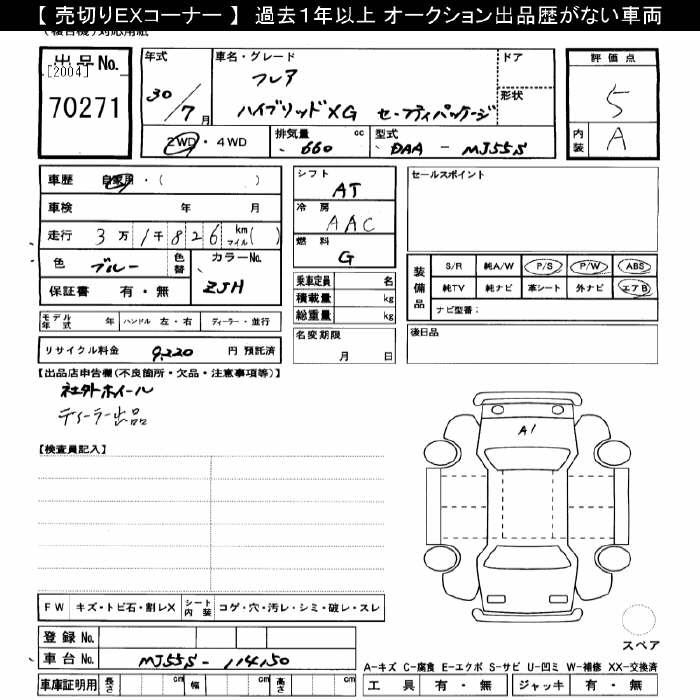 【 売切りEXコーナー 】 過去１年以上 オークション出品歴がない車両
対応用紙
出品No.
[2004]
70271
年式
30/7月
車名・グレード
フレア
ハイブリッドXG セーフティパッケージ
ドア
形状
評価点
5
内装
A
2WD・4WD
排気量 660 cc
型式 DAA - MJ55S
車歴 自家用・( )
車検 年 月
走行 3万1千826 km マイル( )
色 ブルー 色替
カラーNo. ZJH
保証書 有・無
モデル年式 年 ハンドル 左・右 ディーラー・並行
リサイクル料金 9,220 円 預託済
シフト
AT
冷房
AAC
燃料
G
乗車定員 名
積載量 kg
総重量 kg
名変期限
月 日
セールスポイント
装備品
S/R 純A/W P/S P/W ABS
純TV 純ナビ 革シート 外ナビ エアB
ナビ型番：
後日品
【出品店申告欄(不良箇所・欠品・注意事項等)】
社外ホイール
ディーラー出品
【検査員記入】
A1
FW キズ・トビ石・割レX シート内装 コゲ・穴・汚レ・シミ・破レ・スレ
登録No.
車台No. MJ55S-114150
車庫証明用 長さ cm 幅 cm 高さ cm
スペア
A-キズ C-腐食 E-エクボ S-サビ U-凹ミ W-補修 XX-交換済
工具 有・無 ジャッキ 有・無